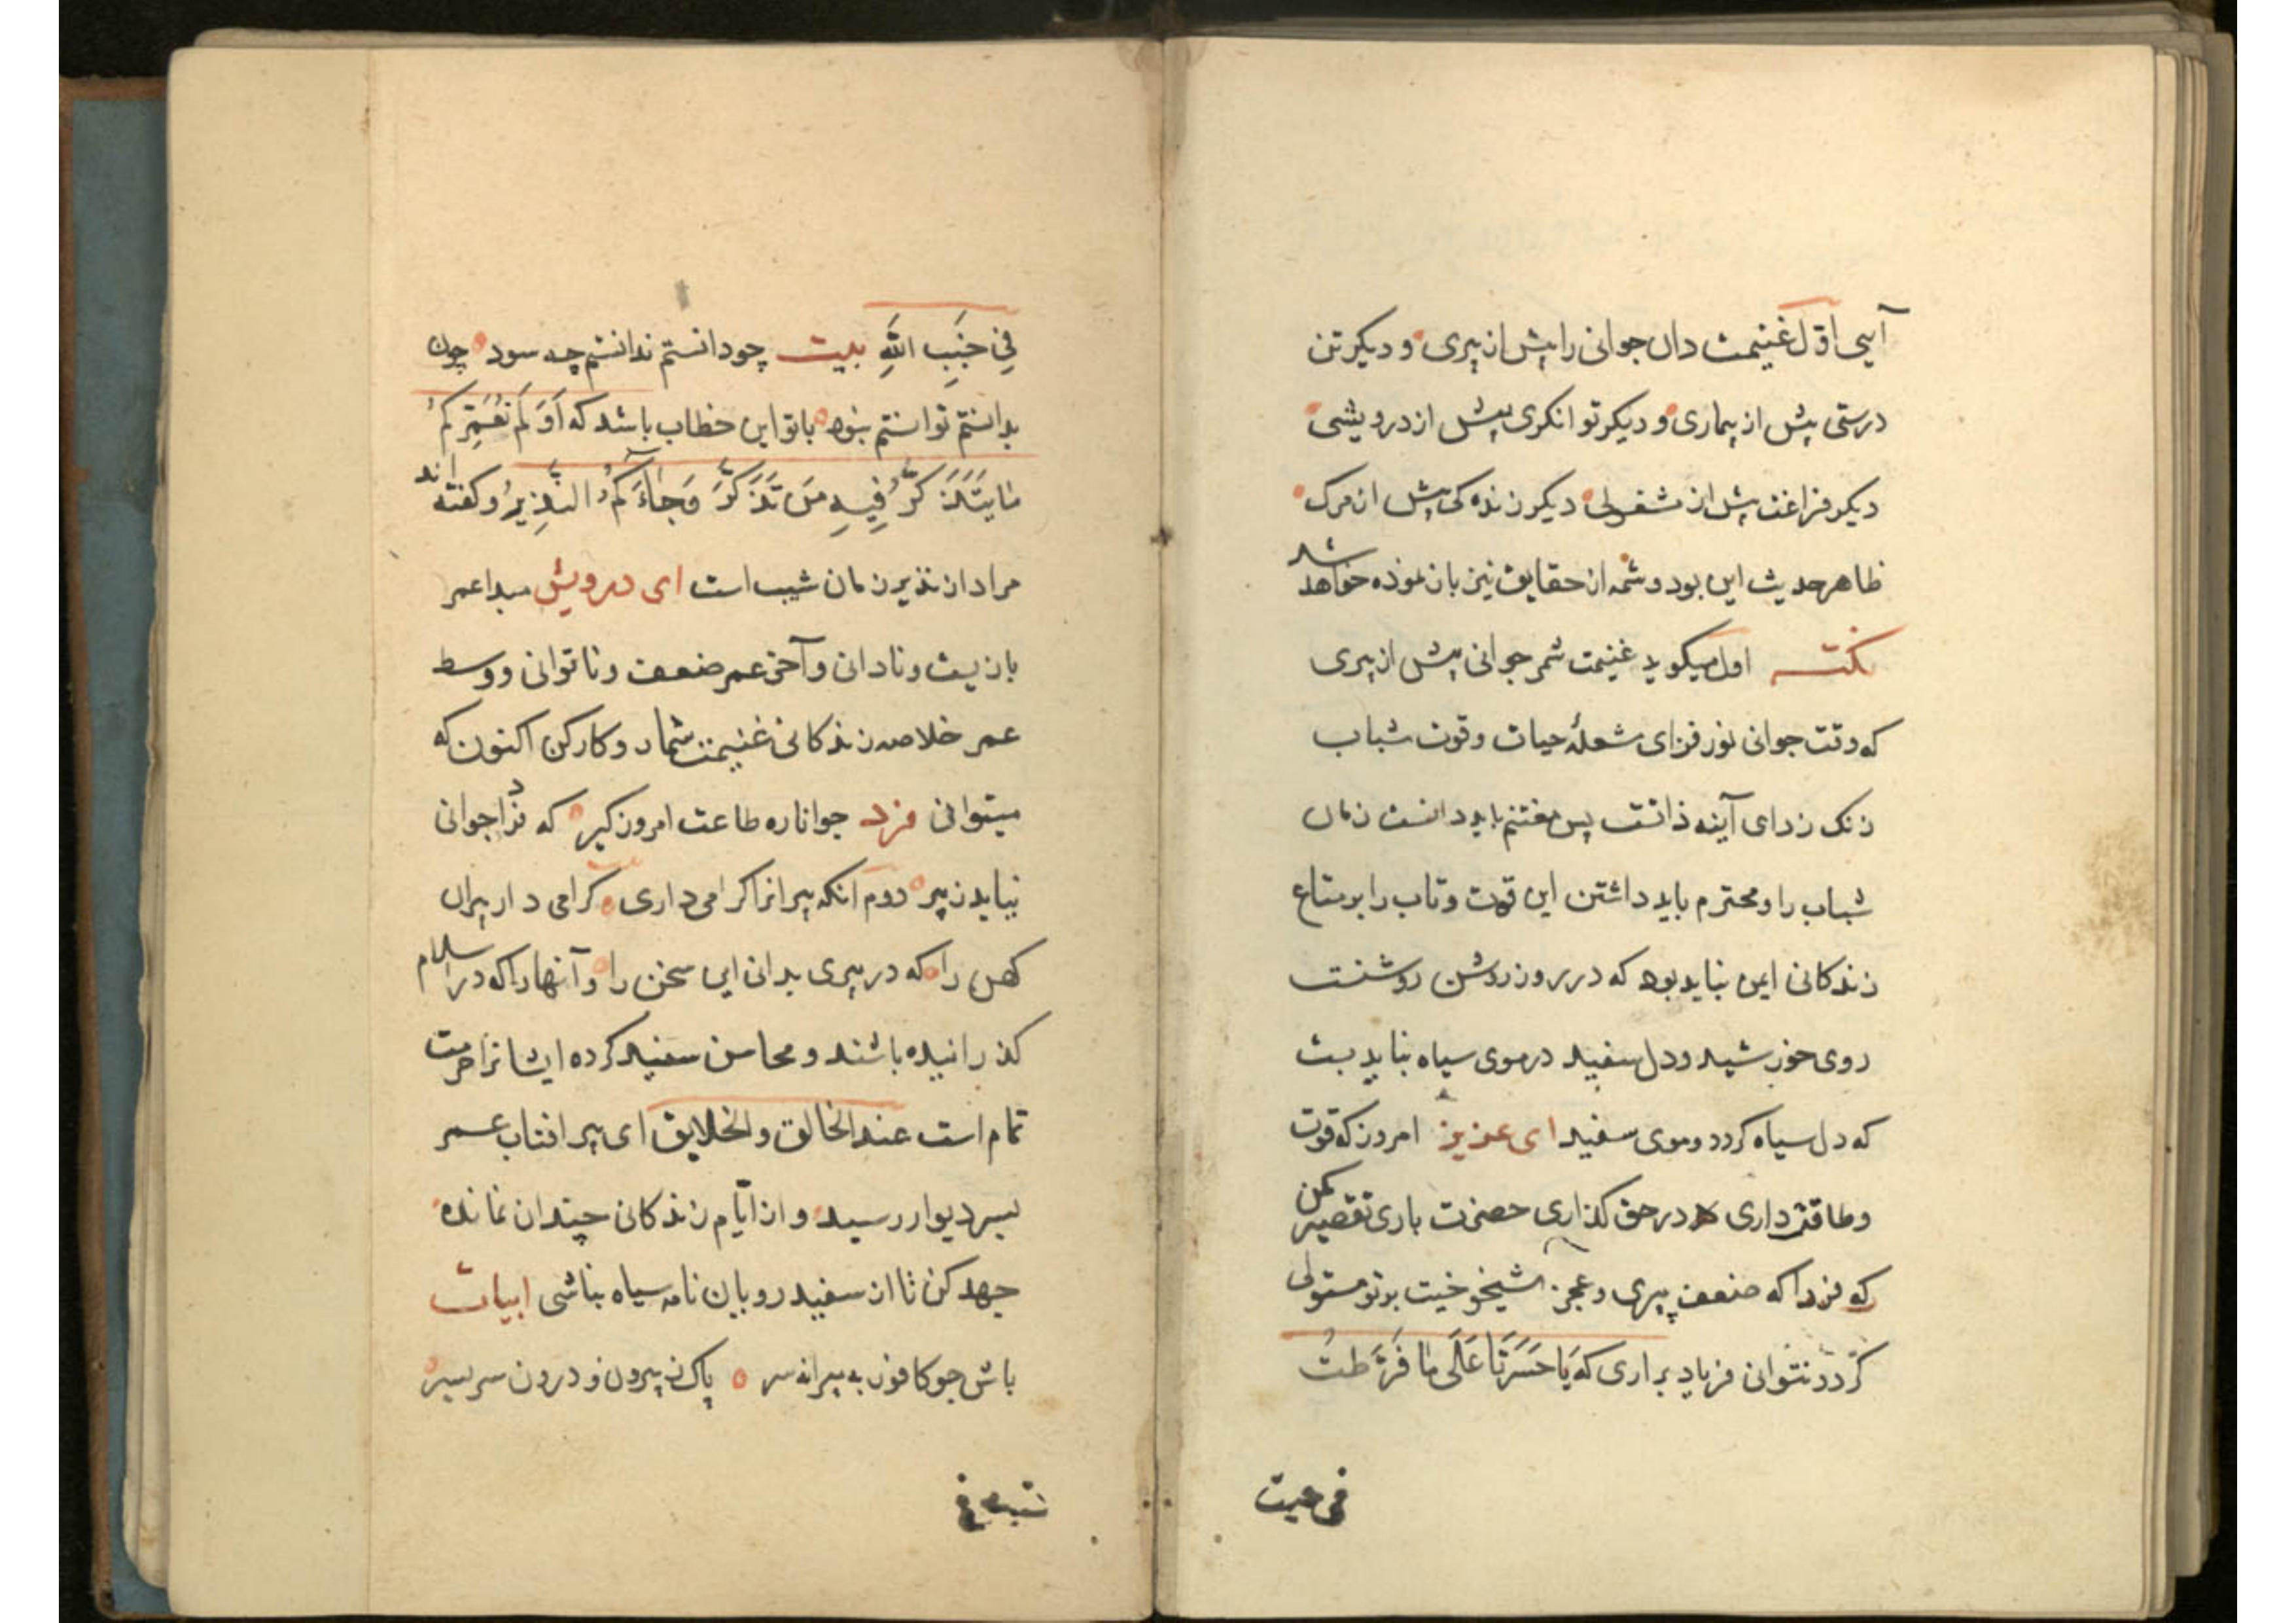 آسی اوّل غنیمت دان جوانی را پیش از پیری و دیکر تن
درستی پیش از بیماری و دیکر توانکری پیش از درویشی
دیکر فراغت پیش از مشغولی دیکر زنده کی پیش از مرک
ظاهر حدیث این بود و شمه از حقایق نیز باز نموده خواهد شد
نکته اول میکوید غنیمت شمر جوانی پیش از پیری
که وقت جوانی نور فزای شعلهٔ حیات و قوت شباب
زنک زدای آینه ذاتست پس مغتنم باید دانست زمان
شباب را و محترم باید داشتن این قوت و تاب را بر متاع
زندکانی ایمن نباید بود که در روز روشن روشنست
روی خورشید و دل سفید در موی سیاه نباید بست
که دل سیاه کردد و موی سفید ای عزیز امروز که قوت
و طاقت داری در حق کذاری حضرت باری تقصیر مکن
که فردا که ضعف پیری و عجز شیخوخیت بر تو مستولی
کردد نتوانی فریاد براری که یَا حَسْرَتَا عَلَی مَا فَرَّطتُ
فی جنب
فِی جَنبِ اللَّهِ بیت چو دانستم ندانستم چه سود چون
بدانستم توانستم نبود با تو این خطاب باشد که اَوَ لَم نُعَمِّرکُم
مَا یَتَذَکَّرُ فِیهِ مَن تَذَکَّرَ وَ جَاءَکُمُ النَّذِیرُ و کفته اند
مراد از نذیر زمان شیب است ای درویش مبدا عمر
بازیست و نادانی و آخر عمر ضعف و ناتوانی و وسط
عمر خلاصه زندکانی غنیمت شمار و کار کن اکنون که
میتوانی فرد جوانا ره طاعت امروز کیر که فردا جوانی
نیاید ز پیر دوم آنکه پیرانرا کرامی داری کرامی دار پیران
کهن را که در پیری بدانی این سخن را و آنها را که در اسلام
کذرانیده باشند و محاسن سفید کرده ایشانرا حرمت
تمام است عند الخالق والخلایق ای پیر افتاب عمر
بسر دیوار رسید و از ایّام زندکانی چندان نمانده
جهد کن تا از سفید رویان نامه سیاه نباشی ابیات
باش چو کافور به پیرانه سر پاک ز بیرون و درون سربسر